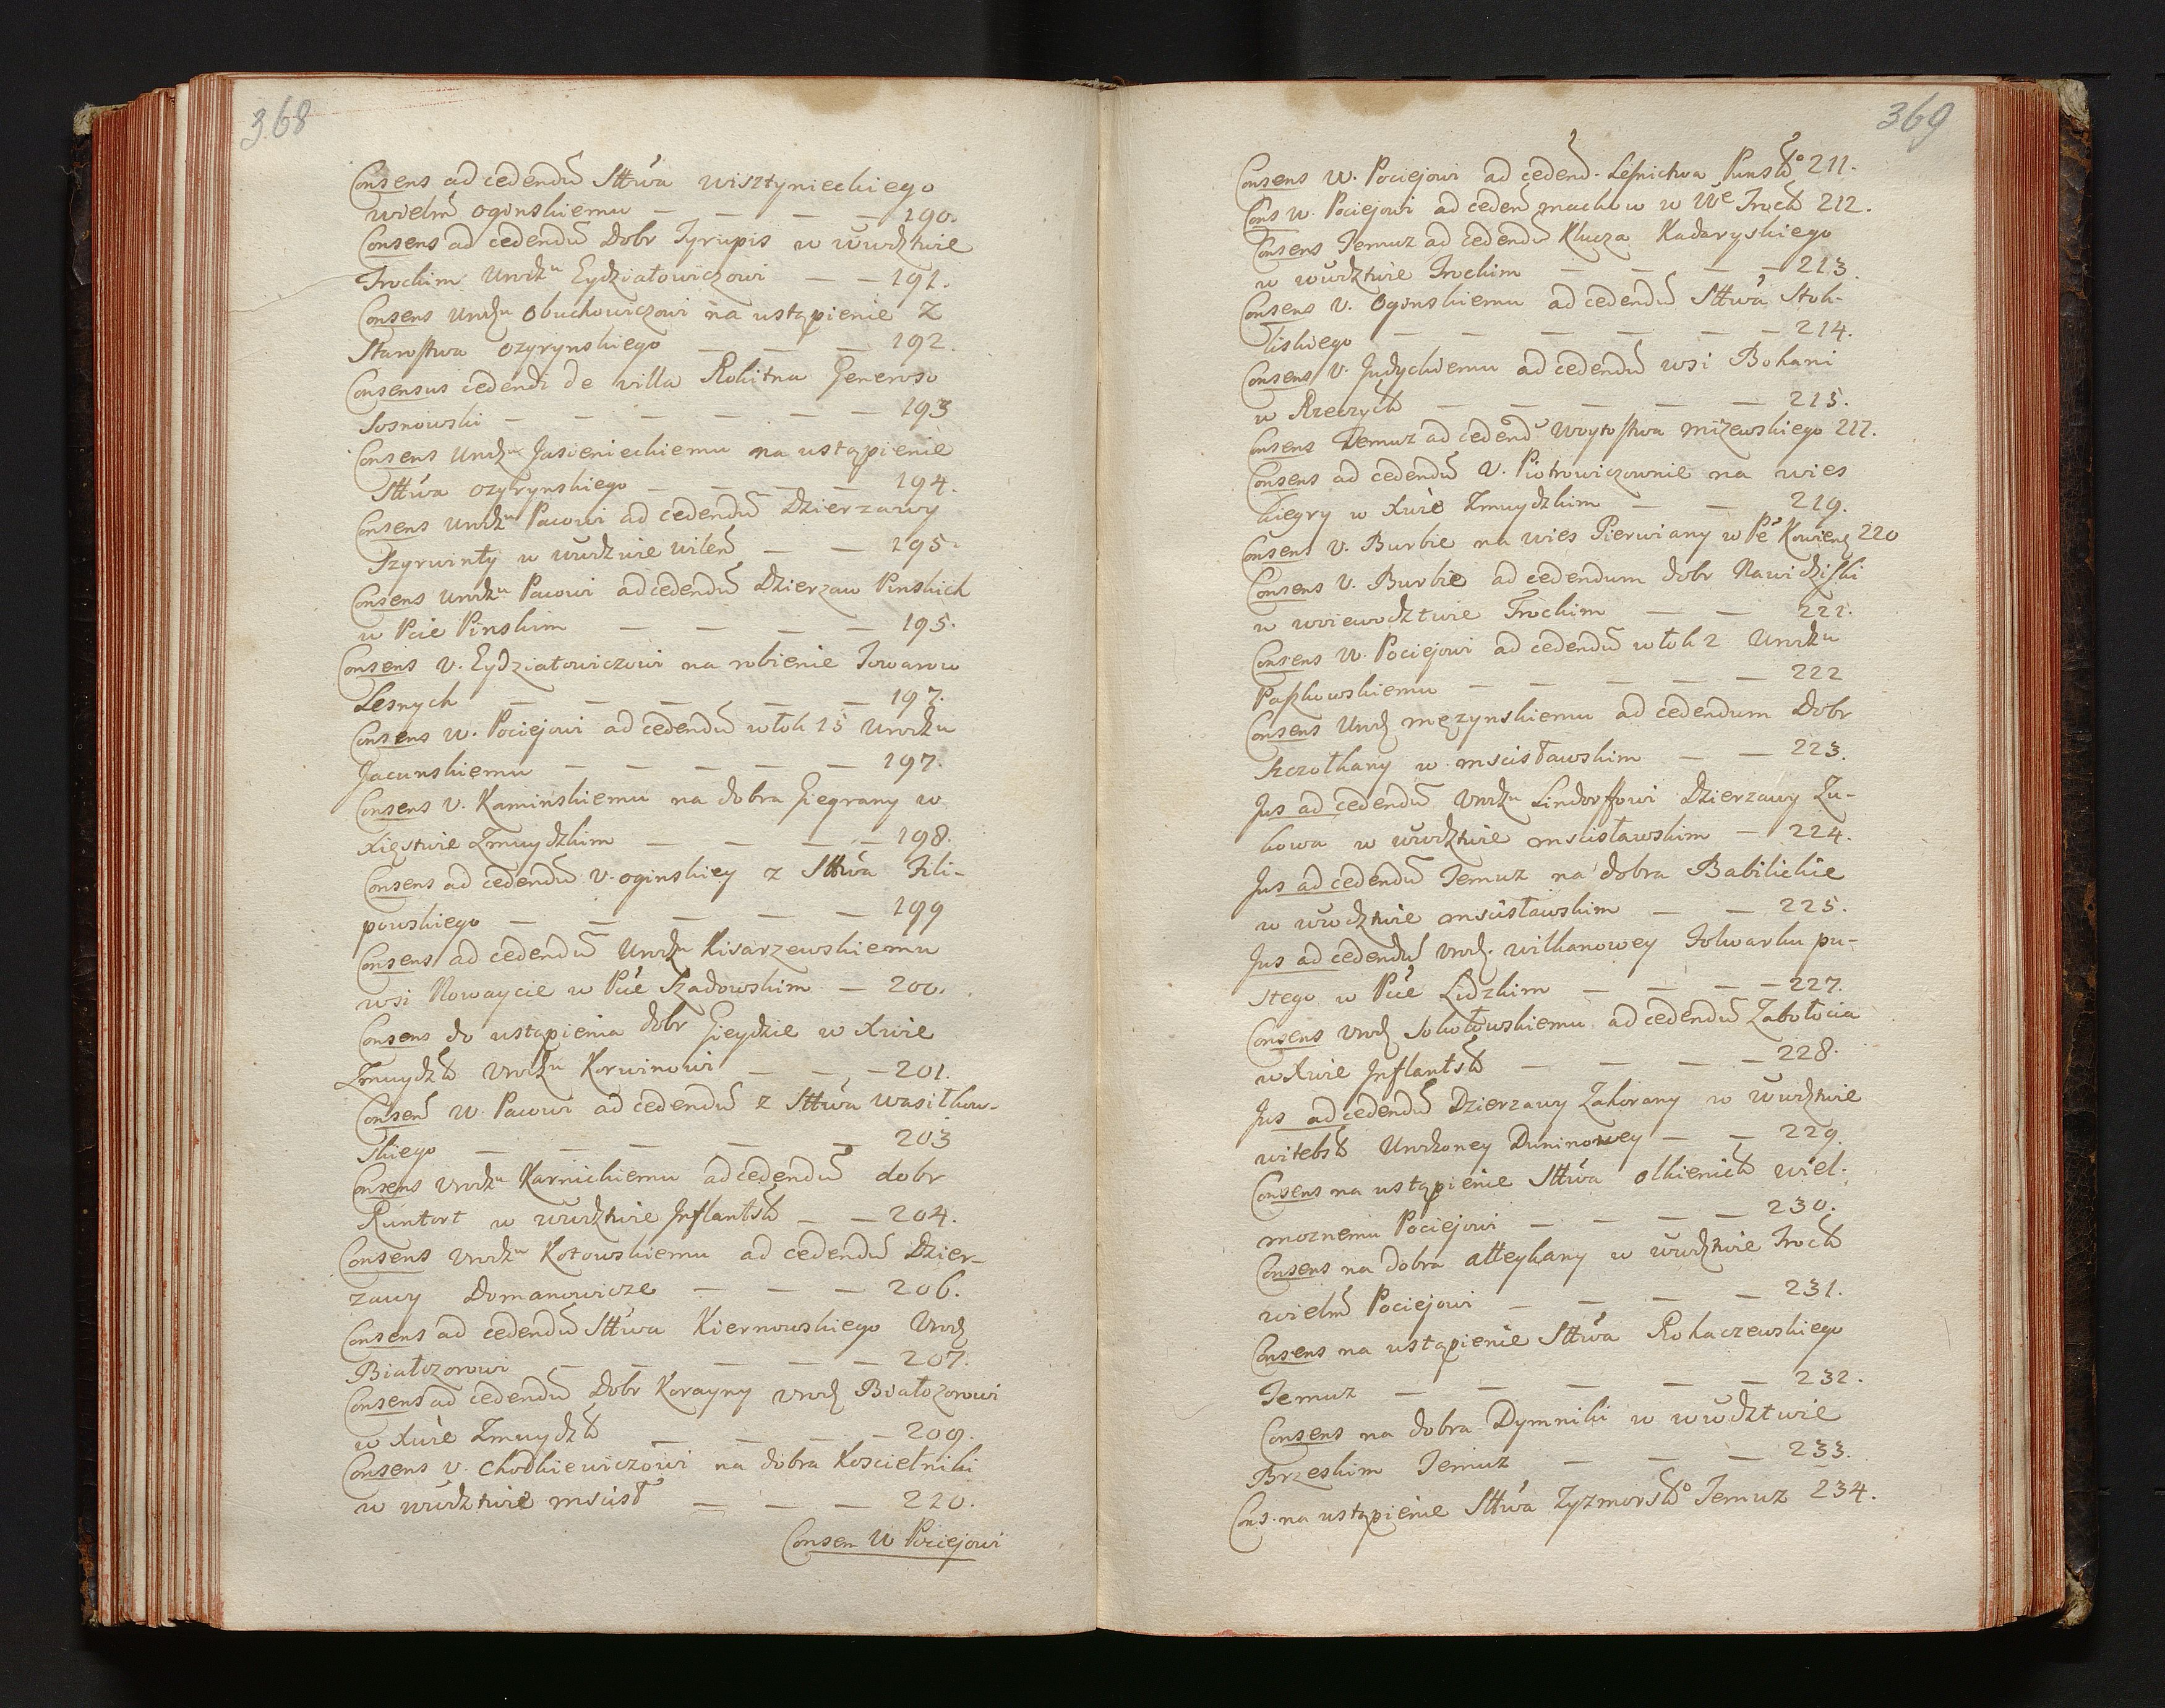 368
Consens ad cedendū Sttwa wisztynieckiego
wielm̃ Oginskiemu — — — — 190.
Consens ad cedendū Dobr Tyrupis w Wwdztwie
Trockim Urodzu Eydziatowiczowi — — 191.
Consens Urodzu Obuchowiczowi na ustąpienie Z
Starostwa Ozyrynskiego — — — 192.
Consensus cedendi de villa Rohitna Generoso
Sosnowski — — — — — — 193
Consens Urodzu Jasienieckiemu na ustąpienie
Sttwa Ozyrynskiego — — — — 194.
Consens Urodzu Pacowi ad cedendū Dzierzawy
Szyrwinty w wwdztwie wilen̄ — — 195.
Consens Urodzu Pacowi ad cedendū Dzierzaw Pinskich
w Pcie Pinskim — — — — 195.
Consens V. Eydziatowiczowi na robienie Towarow
Lesnych — — — — — 197.
Consens W. Pociejowi ad cedendū włok 15 Urodzu
Jacunskiemu — — — — — 197.
Consens V. Kaminskiemu na dobra Giegrany w
Xięstwie Zmuydzkim — — — — 198.
Consens ad cedendū V. Oginskiey z Sttwa Fili-
powskiego — — — — — 199
Consens ad cedendū Urodzu Kisarzewskiemu
wsi Nowaycie w Pcie Szadowskim — 200.
Consens do ustąpienia dobr Gieydzie w Xwie
Zmuydzk Urodzu Korwinowi — — — 201.
Consens W. Pacowi ad cedendū z Sttwa wasilkow-
skiego — — — — — 203
Consens Urodzu Karnickiemu ad cedendū dobr
Runtort w wwdztwie Inflantsk — — 204.
Consens Urodzu Kotowskiemu ad cedendū Dzier-
zawy Domanowicze — — — 206.
Consens ad cedendū Sttwa Kiernowskiego Urodz
Białozorowi — — — — — 207.
Consens ad cedendū Dobr Korayny Urodz Białozorowi
w Xwie Zmuydzk — — — — 209.
Consens V. Chodkiewiczowi na dobra Koscielniki
w wwdztwie mscisł — — — 210.
Consen W Pociejowi
369
Consens W. Pociejowi ad cedend. Lesnictwa Punsko 211.
Cons W. Pociejowi ad ceden̄ machow w We Trock 212.
Consens Temuz ad cedendū Klucza Kadaryskiego
w wwdztwie Trockim — — — — 213.
Consens V. Oginskiemu ad cedendū Sttwa Stok-
liskiego — — — — — — 214.
Consens V. Judyckiemu ad cedendū wsi Bohani
w Rzeczyck — — — — — 215.
Consens Temuz ad cedend̄ Woytostwa mizewskiego 217.
Consens ad cedendū V. Piotrowiczownie na wies
Kiegry w Xwie Zmuydzkim — — 219.
Consens V. Burbie na wies Pierwiany w Pe Kowień 220
Consens V. Burbie ad cedendum dobr Nawidziski
w woiewodztwie Trockim — — 221.
Consens W. Pociejowi ad cedendū włok 2 Urodzu
Paszkowskiemu — — — — — 222
Consens Urodz męzynskiemu ad cedendum Dobr
Szczotkany w mscisławskim — — 223.
Jus ad cedendū Urodzu Lindorffowi Dzierzawy Zu-
kowa w wwdztwie mscisławskim — 224.
Jus ad cedendū Temuz na dobra Babilickie
w wwdztwie mscisławskim — — 225.
Jus ad cedendū Urodz. wilkanowey Folwarku pu-
stego w Pcie Lidzkim — — — — 227.
Consens Urodz Sokołowskiemu ad cedendū Zabołocia
w Xwie Inflantsk — — — — 228.
Jus ad cedendū Dzierzawy Zahorany w Wwdztwie
witebsk Urodzoney Duninowey — — 229.
Consens na ustąpienie Sttwa Olkienick wiel-
moznemu Pociejowi — — — — 230.
Consens na dobra Alleykany w wwdztwie Trock
wielm̃ Pociejowi — — — — 231.
Consens na ustąpienie Sttwa Rohaczewskiego
Temuz — — — — — 232.
Consens na dobra Dymniki w wwdztwie
Brzeskim Temuz — — — 233.
Cons. na ustąpienie Sttwa Zyzmorsko Temuz 234.